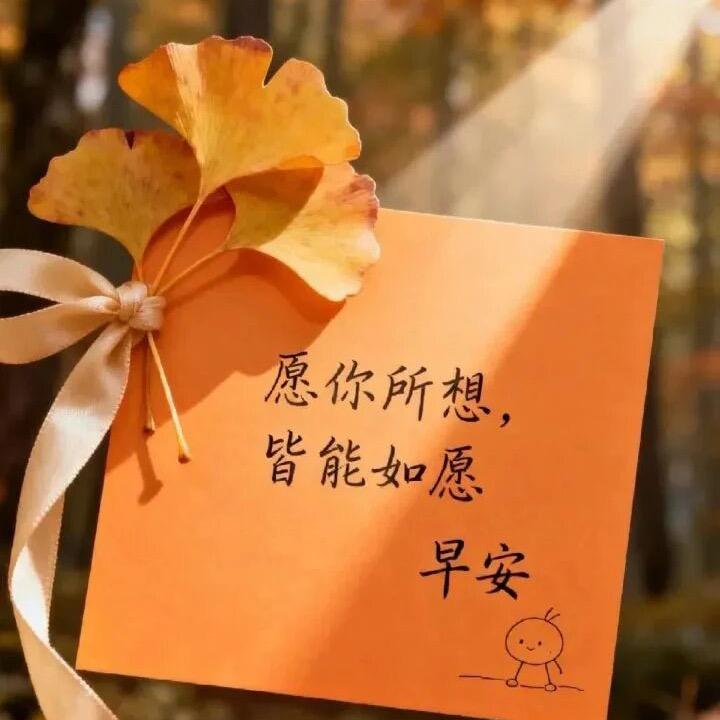 愿你所想，
皆能如愿
早安